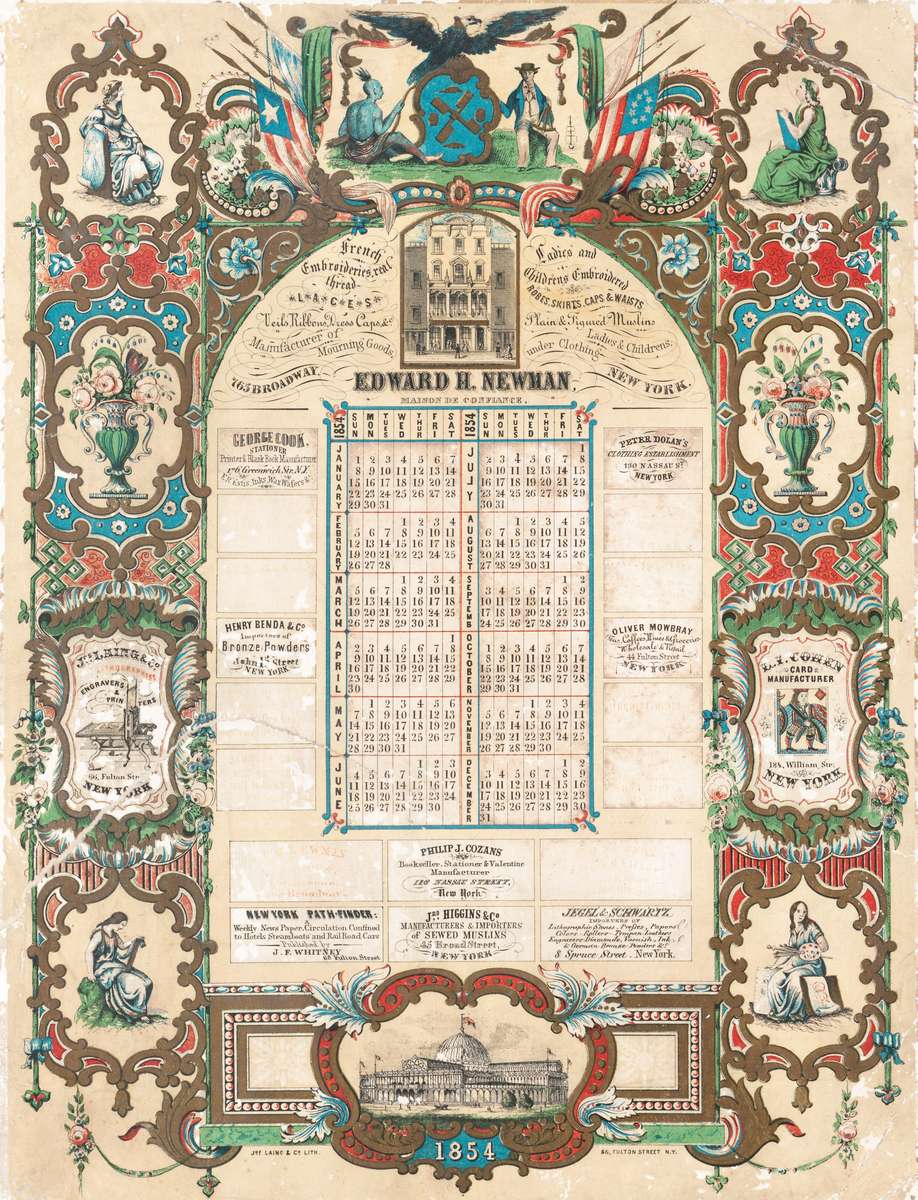 French
Embroideries, real
thread
LACES
Veils Ribbons, Dress Caps, &c
Manufacturer of
Mourning Goods
Ladies and
Childrens Embroidered
ROBES, SKIRTS, CAPS & WAISTS
Plain & Figured Muslins
Ladies & Childrens,
under Clothing
765 BROADWAY,
EDWARD H. NEWMAN,
NEW YORK.
MAISON DE CONFIANCE,
GEORGE COOK,
STATIONER
Printer & Blank Book Manufacturer
176 Greenwich Str. N.Y.
Inks, Wax Wafers &c
HENRY BENDA & Co
Importers of
Bronze Powders
John Street
NEW YORK
PETER DOLAN'S
CLOTHING ESTABLISHMENT
130 NASSAU St
NEW YORK
OLIVER MOWBRAY
Teas, Coffees, Wines & Groceries
Wholesale & Retail
44 Fulton Street
NEW YORK
1854 SUN MON TUES WED THUR FRI SAT
JANUARY
1 2 3 4 5 6 7
8 9 10 11 12 13 14
15 16 17 18 19 20 21
22 23 24 25 26 27 28
29 30 31
FEBRUARY
1 2 3 4
5 6 7 8 9 10 11
12 13 14 15 16 17 18
19 20 21 22 23 24 25
26 27 28
MARCH
1 2 3 4
5 6 7 8 9 10 11
12 13 14 15 16 17 18
19 20 21 22 23 24 25
26 27 28 29 30 31
APRIL
1
2 3 4 5 6 7 8
9 10 11 12 13 14 15
16 17 18 19 20 21 22
23 24 25 26 27 28 29
30
MAY
1 2 3 4 5 6
7 8 9 10 11 12 13
14 15 16 17 18 19 20
21 22 23 24 25 26 27
28 29 30 31
JUNE
1 2 3
4 5 6 7 8 9 10
11 12 13 14 15 16 17
18 19 20 21 22 23 24
25 26 27 28 29 30
1854 SUN MON TUES WED THUR FRI SAT
JULY
1
2 3 4 5 6 7 8
9 10 11 12 13 14 15
16 17 18 19 20 21 22
23 24 25 26 27 28 29
30 31
AUGUST
1 2 3 4 5
6 7 8 9 10 11 12
13 14 15 16 17 18 19
20 21 22 23 24 25 26
27 28 29 30 31
SEPTEMB
1 2
3 4 5 6 7 8 9
10 11 12 13 14 15 16
17 18 19 20 21 22 23
24 25 26 27 28 29 30
OCTOBER
1 2 3 4 5 6 7
8 9 10 11 12 13 14
15 16 17 18 19 20 21
22 23 24 25 26 27 28
29 30 31
NOVEMBER
1 2 3 4
5 6 7 8 9 10 11
12 13 14 15 16 17 18
19 20 21 22 23 24 25
26 27 28 29 30
DECEMBER
1 2
3 4 5 6 7 8 9
10 11 12 13 14 15 16
17 18 19 20 21 22 23
24 25 26 27 28 29 30
31
Jas LAING & Co
LITHOGRAPHERS
ENGRAVERS
&
PRINTERS
66, Fulton Str.
NEW YORK
L. I. COHEN
CARD
MANUFACTURER
184, William Str.
NEW YORK
PHILIP J. COZANS
Bookseller, Stationer & Valentine
Manufacturer
116 NASSAU STREET,
New York
NEW YORK PATH-FINDER:
Weekly News Paper, Circulation Confined
to Hotels Steamboats and Rail Road Cars
Published by
J. F. WHITNEY
66 Fulton Street
Jno HIGGINS & Co
MANUFACTURERS & IMPORTERS
of SEWED MUSLINS
35 Broad Street,
NEW YORK
JEGEL & SCHWARTZ,
IMPORTERS OF
Lithographic Stones, Presses, Papers,
Colors, Rollers, Tympan Leathers
Engravers Diamonds, Varnish, Ink,
& German Bronze Powders &c
8 Spruce Street, New York.
1854
Jas LAING & Co LITH.
66, FULTON STREET N.Y.